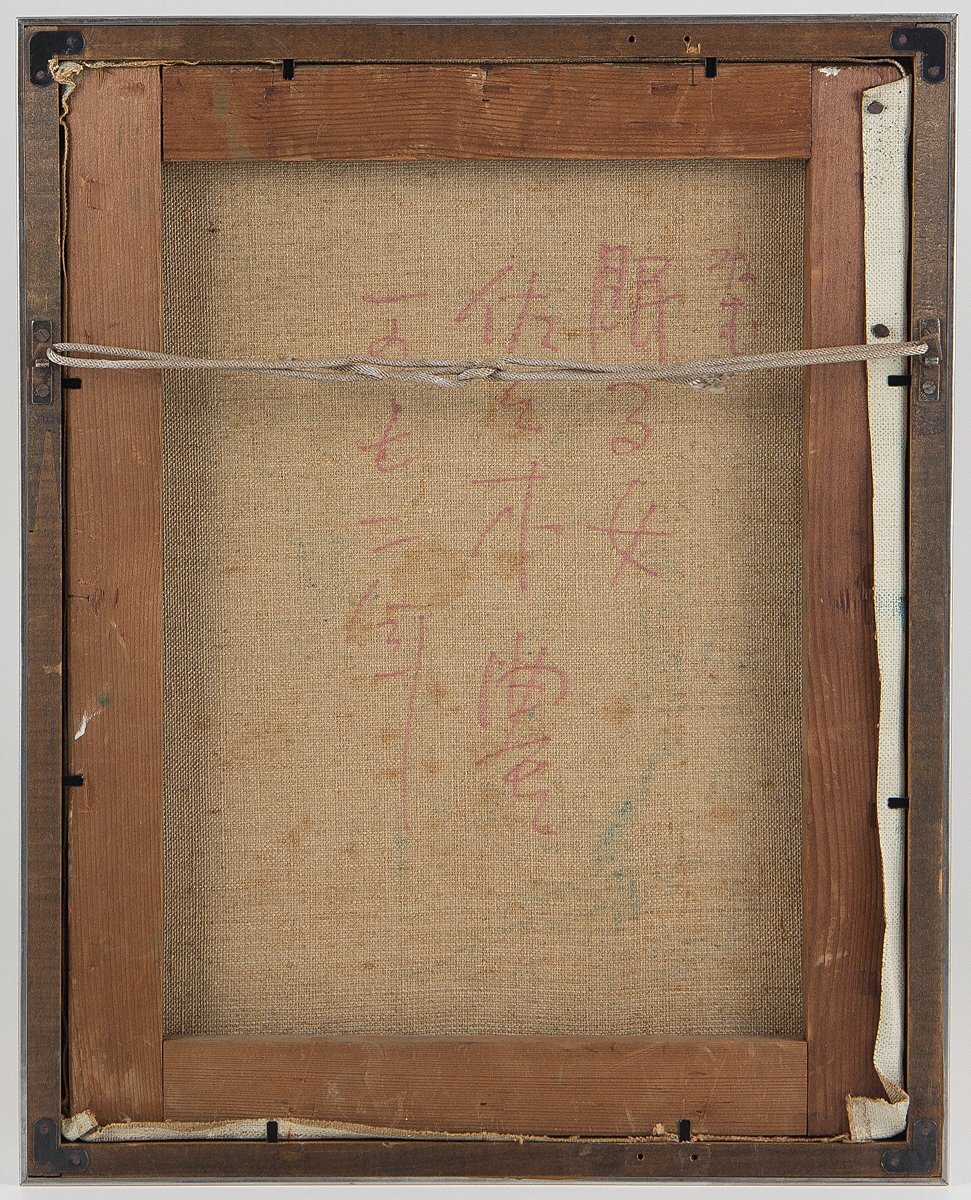 開る女
佐々木豊
一九七二年